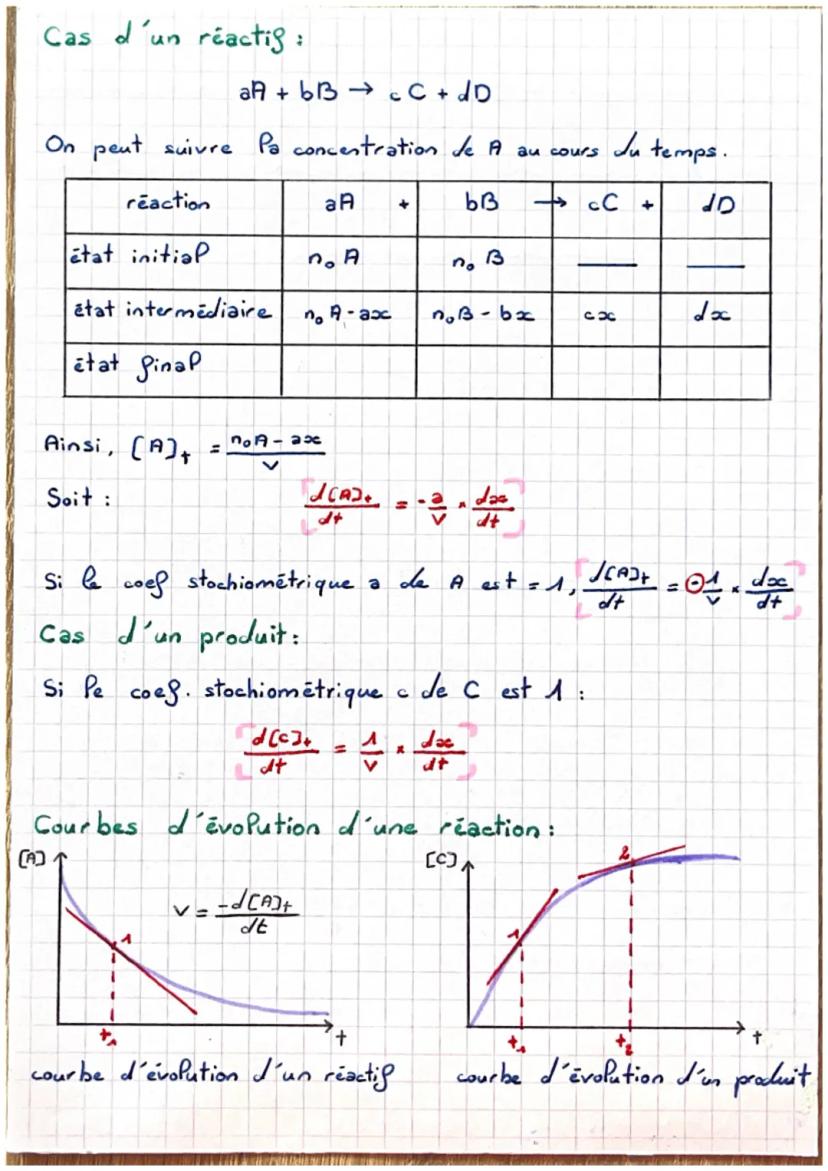 Cas d'un réactif :
aA + bB → cC + dD
On peut suivre la concentration de A au cours du temps.
réaction aA + bB → cC + dD
état initial n₀A n₀B — —
état intermédiaire n₀A-ax n₀B-bx cx dx
état final
Ainsi, [A]t = (n₀A-ax)/V
Soit : d[A]t/dt = -a/V × dx/dt
Si le coef stochiométrique a de A est = 1, d[A]t/dt = -1/V × dx/dt
Cas d'un produit :
Si le coef. stochiométrique c de C est 1 :
d[C]t/dt = 1/V × dx/dt
Courbes d'évolution d'une réaction :
[A] v = -d[A]t/dt 1 t₁ t
[C] 1 2 t₁ t₂ t
courbe d'évolution d'un réactif
courbe d'évolution d'un produit